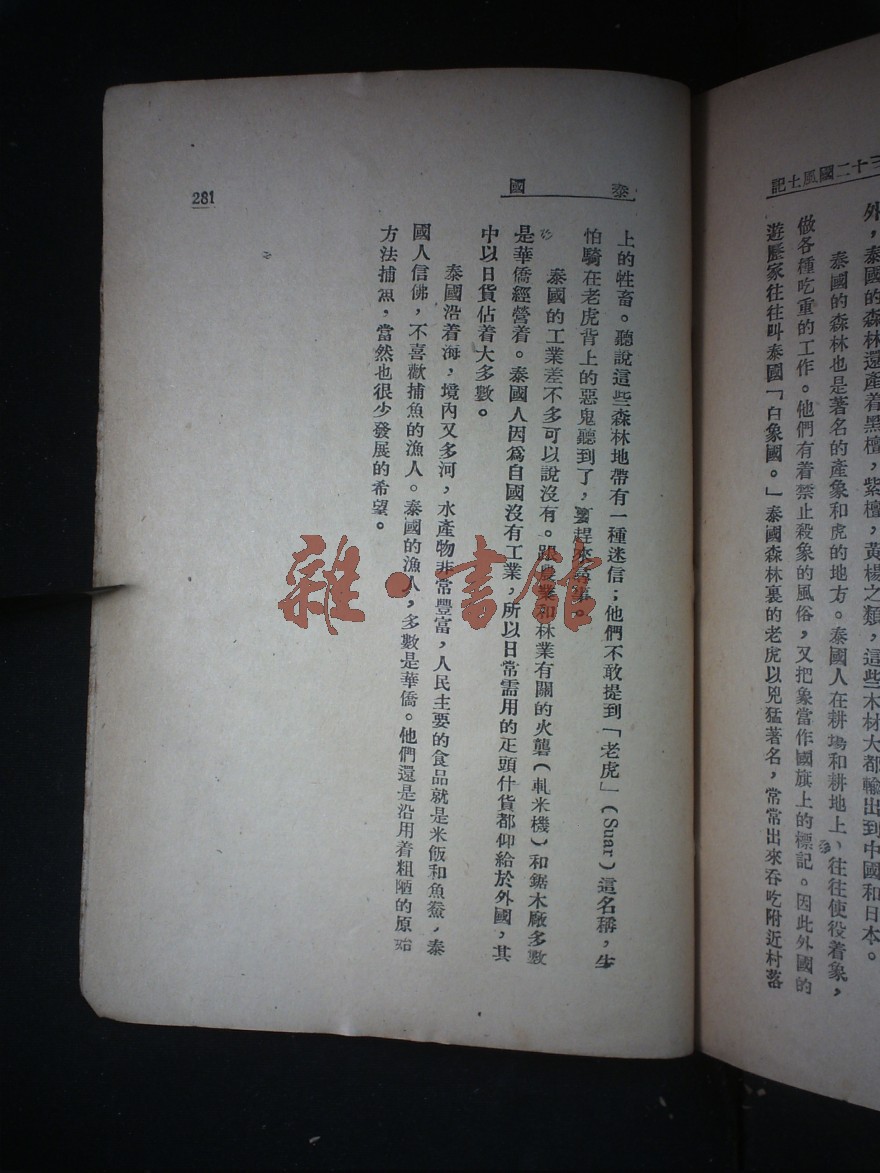 三十二國風土記
外，泰國的森林還產着黑檀，紫檀，黃楊之類，這些木材大都輸出到中國和日本。
泰國的森林也是著名的產象和虎的地方。泰國人在耕場和耕地上，往往使役着象，
做各種吃重的工作。他們有着禁止殺象的風俗，又把象當作國旗上的標記。因此外國的
遊歷家往往叫泰國「白象國。」泰國森林裏的老虎以兇猛著名，常常出來吞吃附近村落
泰國
上的牲畜。聽說這些森林地帶有一種迷信；他們不敢提到「老虎」（Suar）這名稱，生
怕騎在老虎背上的惡鬼聽到了，要趕來尋事。
泰國的工業差不多可以說沒有。跟農業和林業有關的火礱（軋米機）和鋸木廠多數
是華僑經營着。泰國人因爲自國沒有工業，所以日常需用的疋頭什貨都仰給於外國，其
中以日貨佔着大多數。
泰國沿着海，境內又多河，水產物非常豐富，人民主要的食品就是米飯和魚鮝，泰
國人信佛，不喜歡捕魚的漁人。泰國的漁人，多數是華僑。他們還是沿用着粗陋的原始
方法捕魚，當然也很少發展的希望。
281
雜·書館